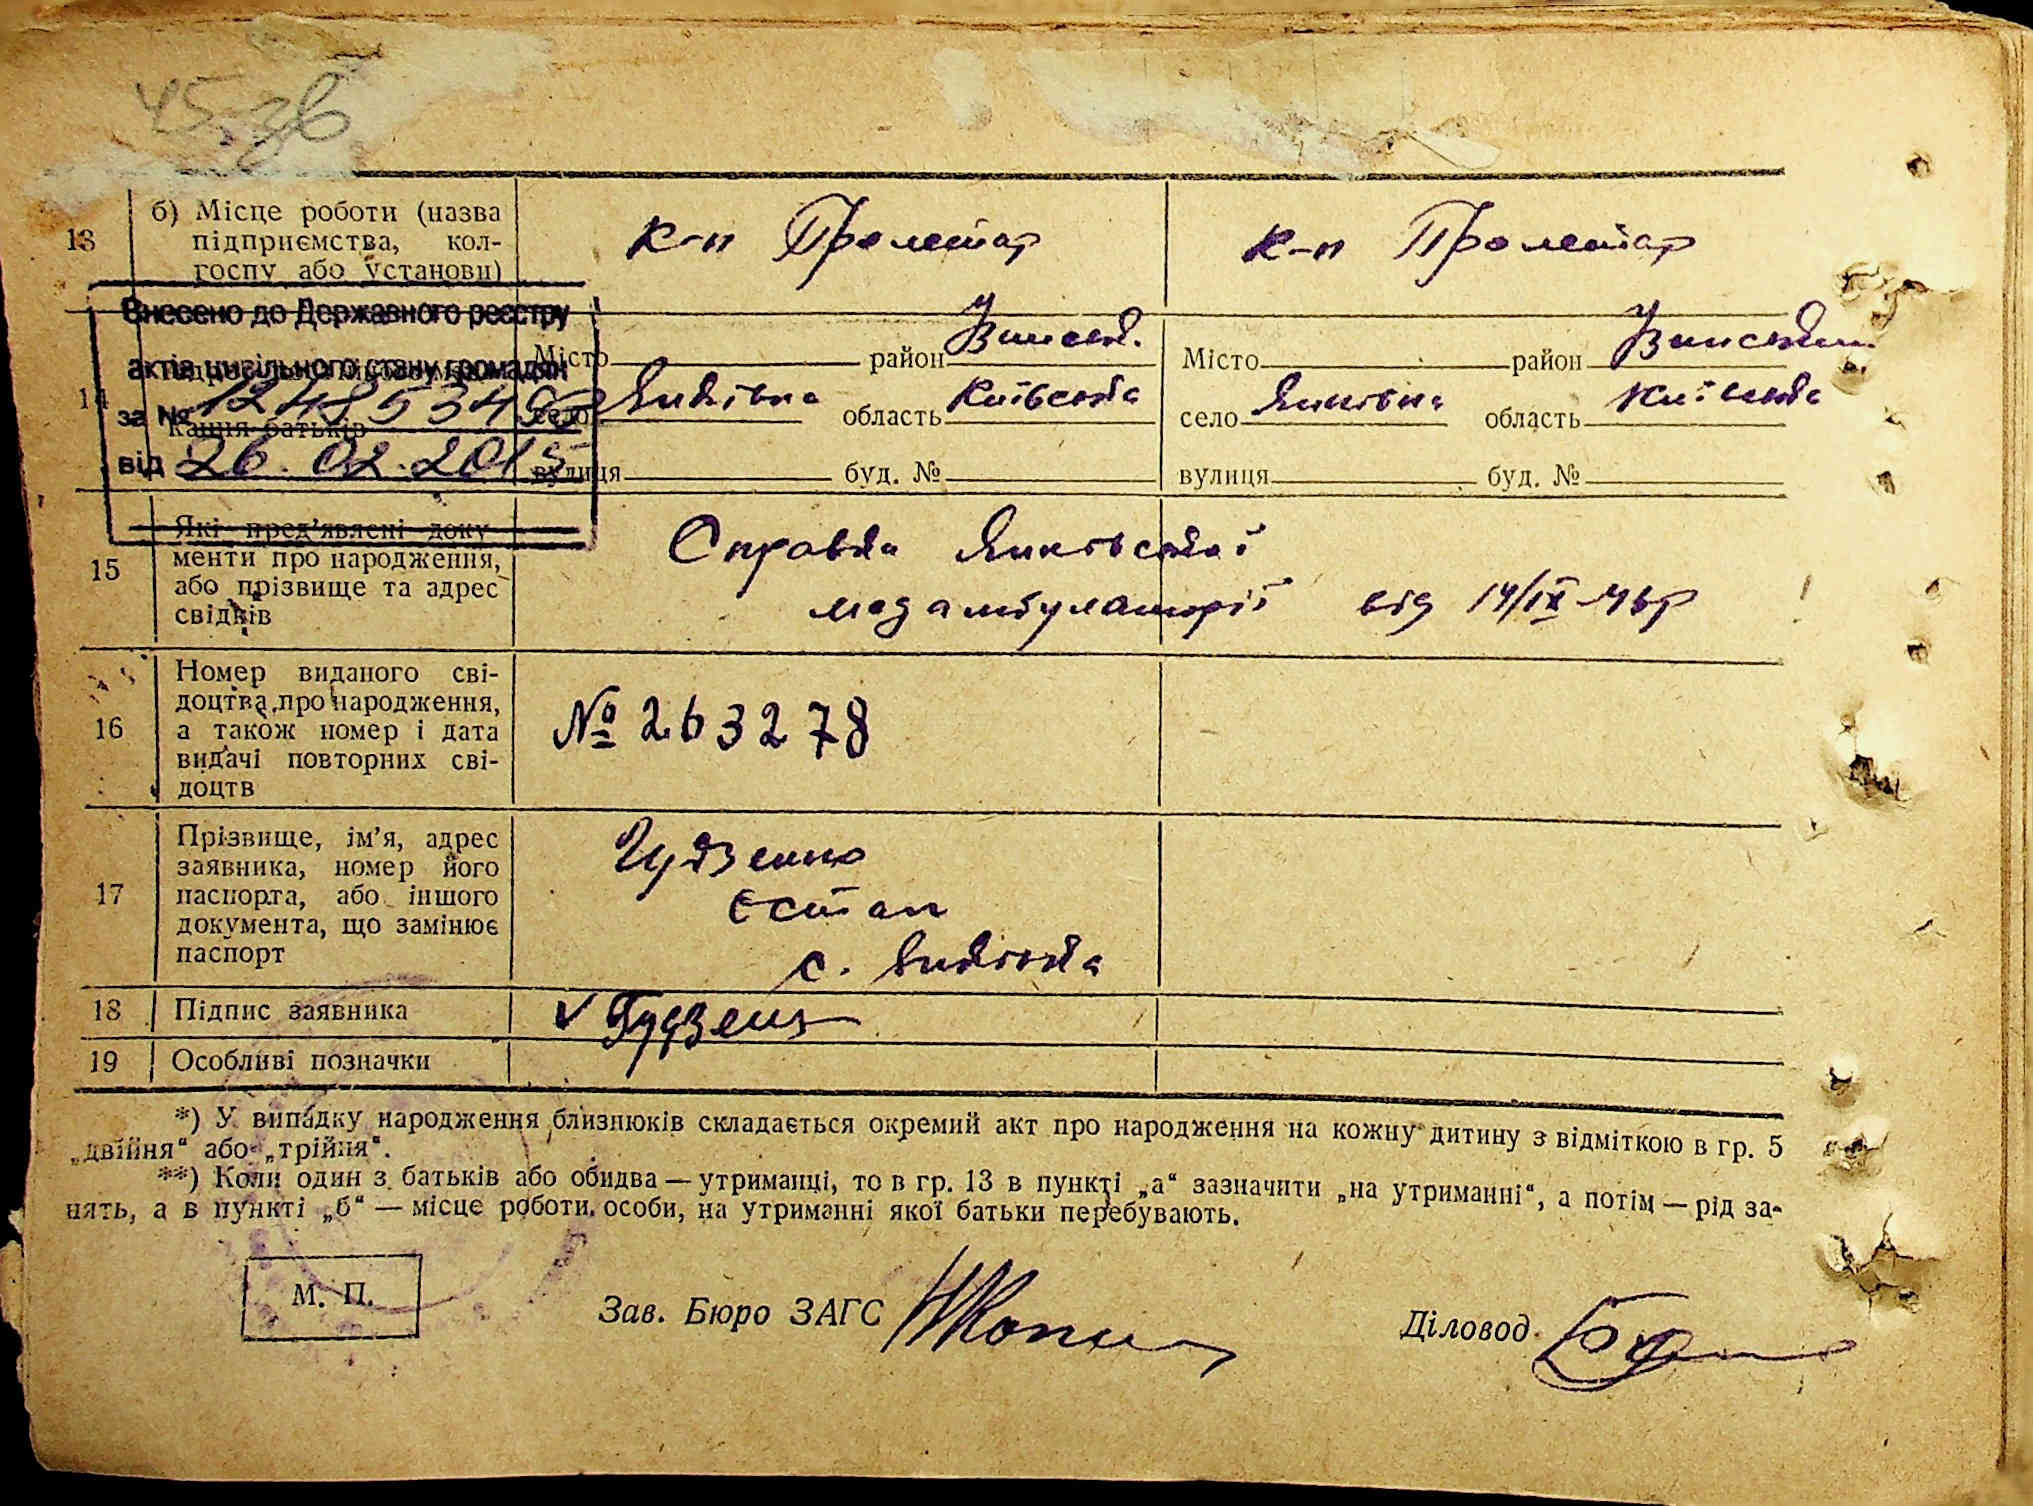 45 зв
13
б) Місце роботи (назва
підприємства, кол-
госпу або установи)
к-п Пролетар
к-п Пролетар
Внесено до Державного реєстру
актів цивільного стану громадян
за №
від 26.02.2015
14
кація батьків
Місто район
село область Київська
вулиця буд. №
Місто район
село область Київська
вулиця буд. №
15
Які пред'явлені доку-
менти про народження,
або прізвище та адрес
свідків
Справка
медамбулаторії від 14/IX-46р
16
Номер виданого сві-
доцтва про народження,
а також номер і дата
видачі повторних сві-
доцтв
№ 263278
17
Прізвище, ім'я, адрес
заявника, номер його
паспорта, або іншого
документа, що замінює
паспорт
Гудзенко
Єстап
с.
18
Підпис заявника
v Гудзенко
19
Особливі позначки
*) У випадку народження близнюків складається окремий акт про народження на кожну дитину з відміткою в гр. 5
„двійня“ або „трійня“.
**) Коли один з батьків або обидва — утриманці, то в гр. 13 в пункті „а“ зазначити „на утриманні“, а потім — рід за-
нять, а в пункті „б“ — місце роботи особи, на утриманні якої батьки перебувають.
М. П.
Зав. Бюро ЗАГС
Діловод